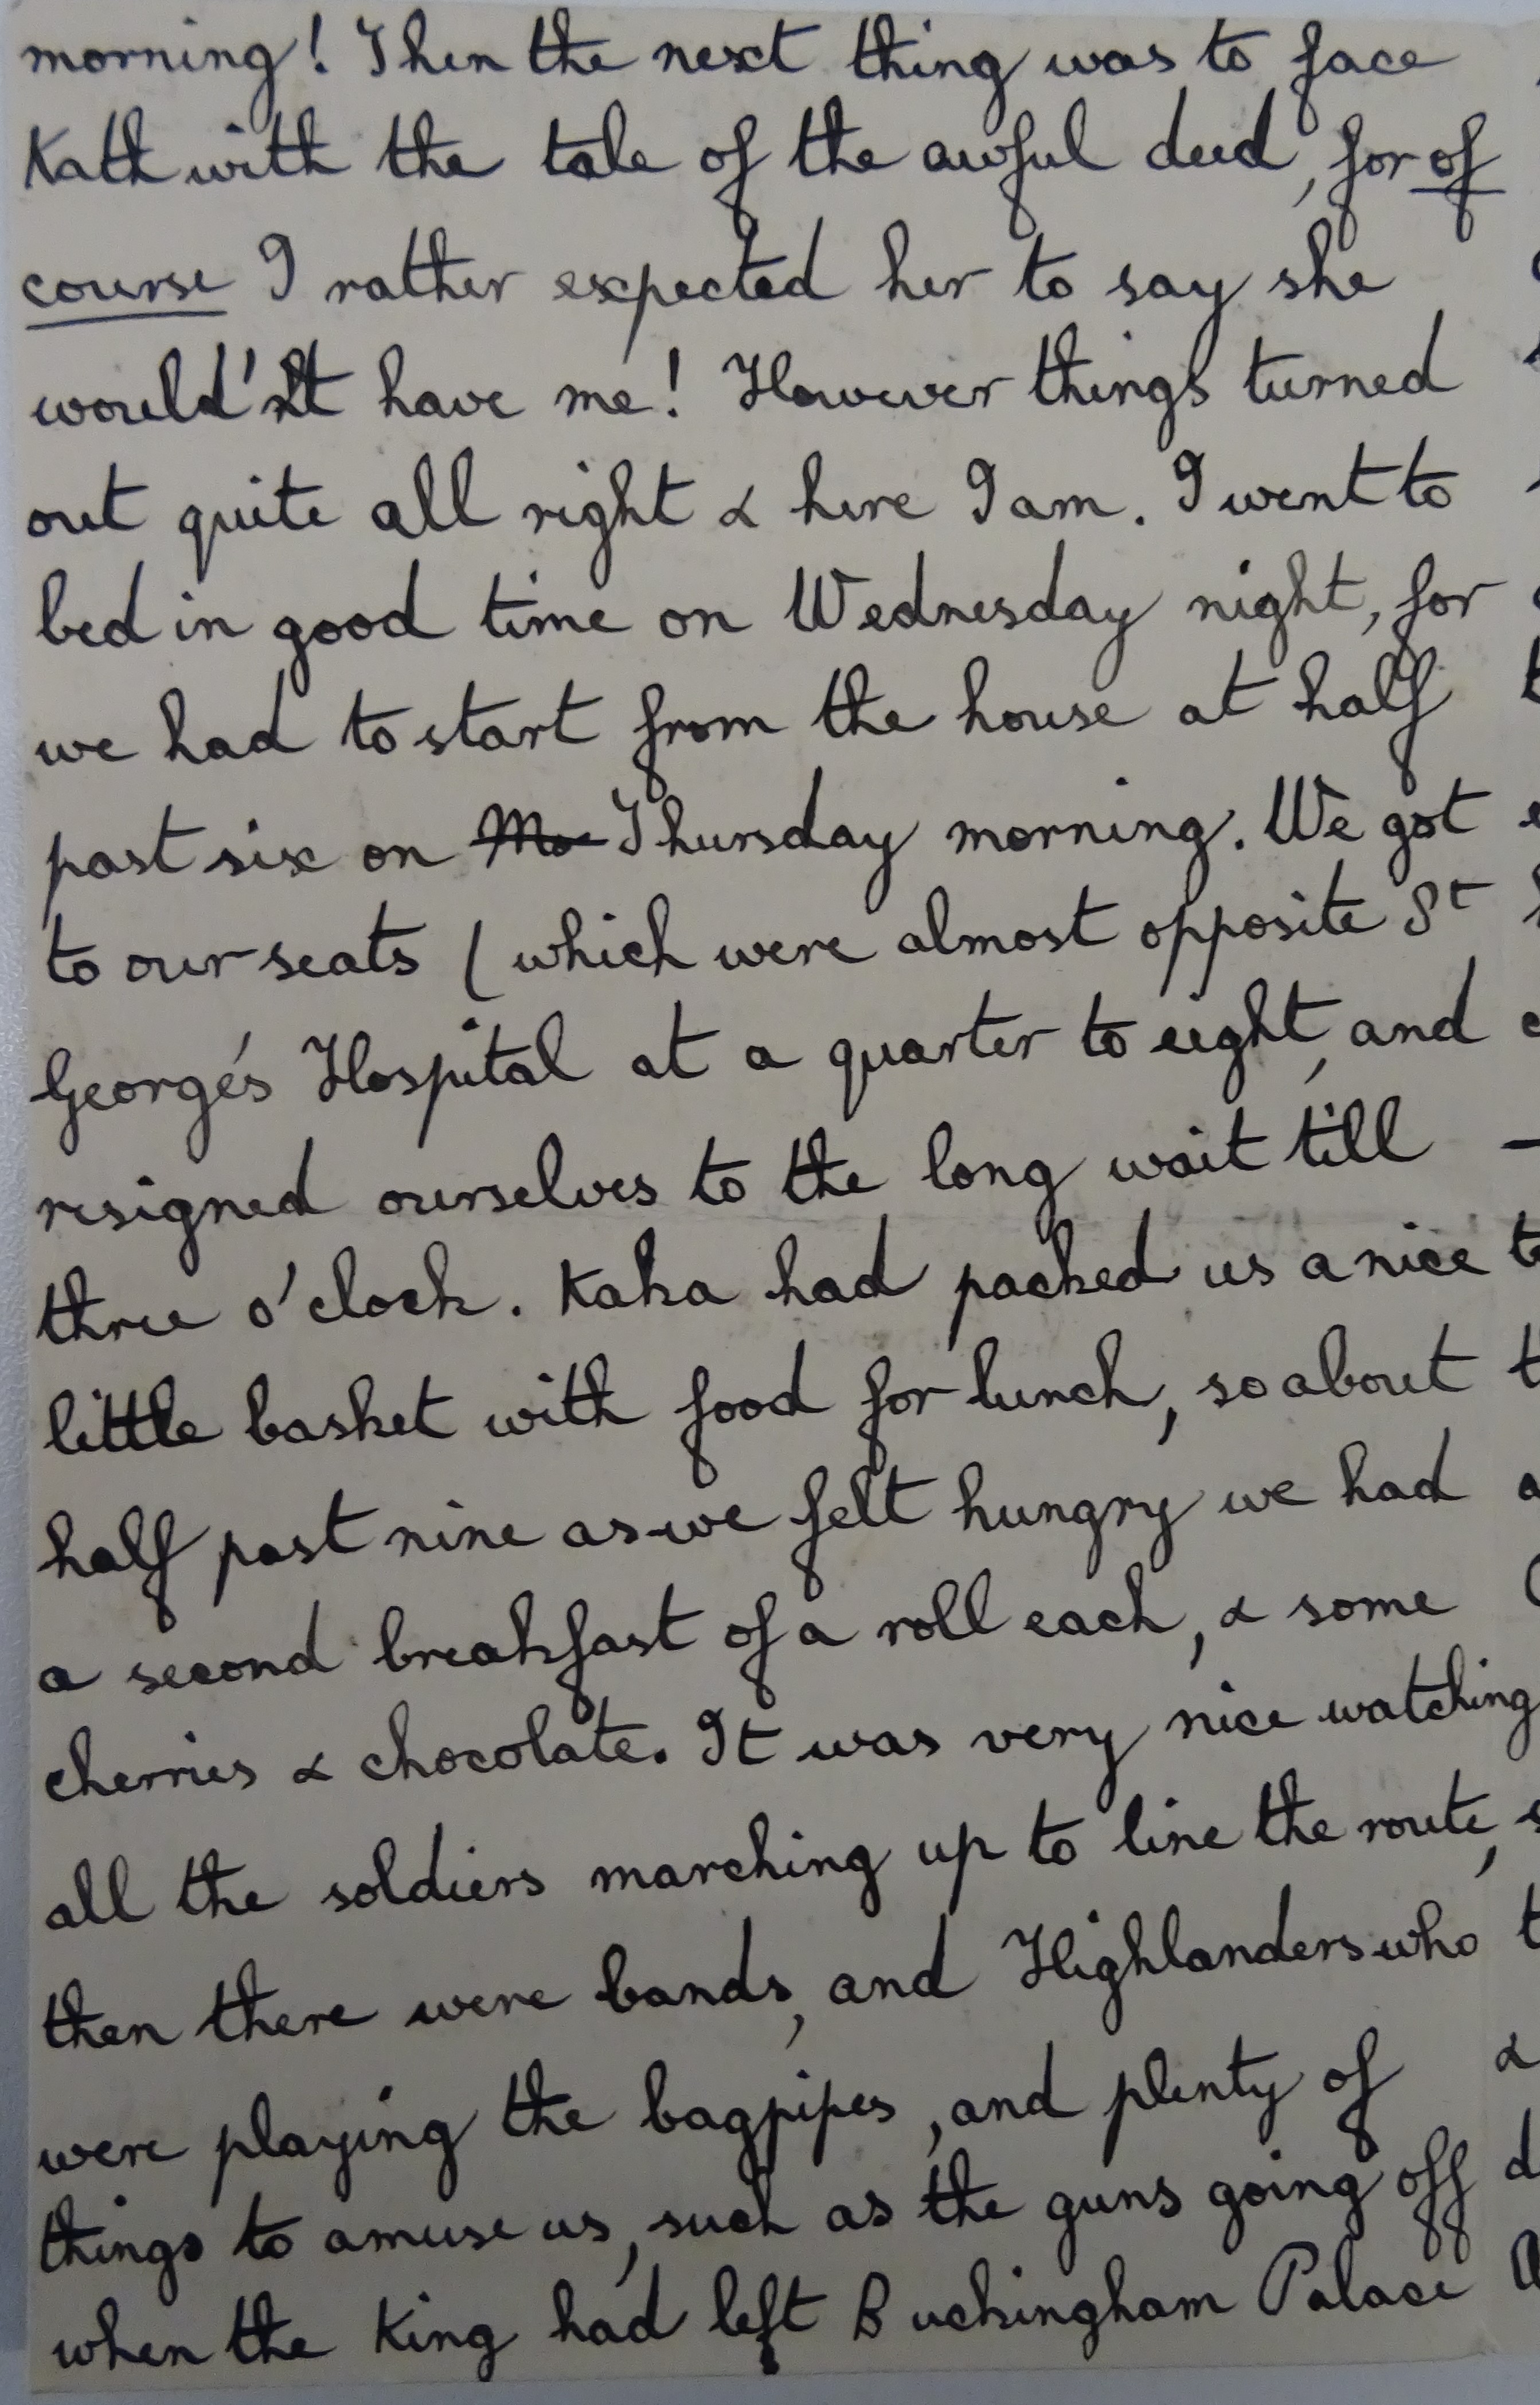 morning! Then the next thing was to face
Kath with the tale of the awful deed, for of
course I rather expected her to say she
would'nt have me! However things turned
out quite all right & here I am. I went to
bed in good time on Wednesday night, for
we had to start from the house at half
past six on Mo Thursday morning. We got
to our seats (which were almost opposite St
George's Hospital at a quarter to eight, and
resigned ourselves to the long wait till
three o'clock. Kaka had packed us a nice
little basket with food for lunch, so about
half past nine as we felt hungry we had
a second breakfast of a roll each, & some
cherries & chocolate. It was very nice watching
all the soldiers marching up to line the route,
then there were bands, and Highlanders who
were playing the bagpipes, and plenty of
things to amuse us, such as the guns going off
when the King had left Buckingham Palace